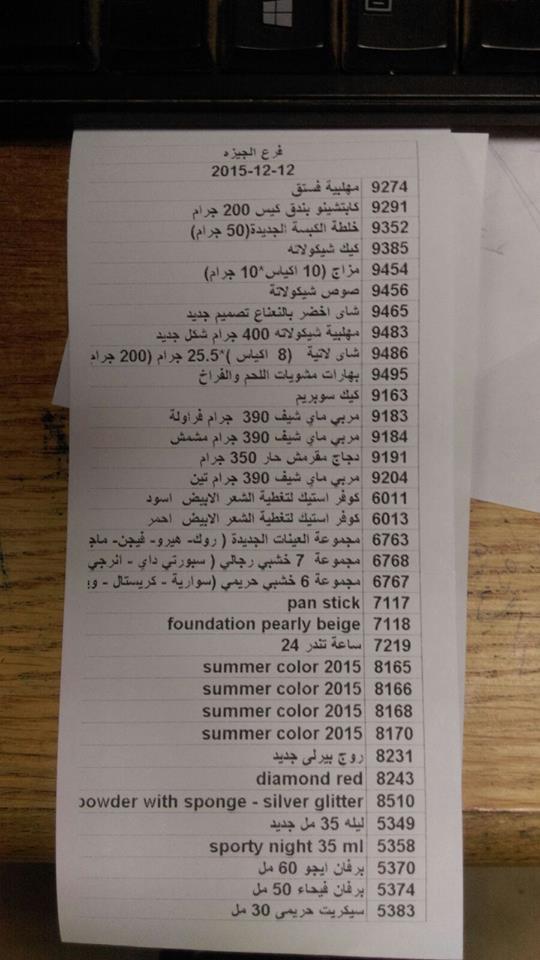 فرع الجيزه
2015-12-12
9274 مهلبية فستق
9291 كابتشينو بندق كيس 200 جرام
9352 خلطة الكبسة الجديدة(50 جرام)
9385 كيك شيكولاته
9454 مزاج (10 اكياس*10 جرام)
9456 صوص شيكولاتة
9465 شاى اخضر بالنعناع تصميم جديد
9483 مهلبية شيكولاته 400 جرام شكل جديد
9486 شاى لاتية (8 اكياس )*25.5 جرام (200 جرام
9495 بهارات مشويات اللحم والفراخ
9163 كيك سوبريم
9183 مربي ماي شيف 390 جرام فراولة
9184 مربي ماي شيف 390 جرام مشمش
9191 دجاج مقرمش حار 350 جرام
9204 مربي ماي شيف 390 جرام تين
6011 كوفر استيك لتغطية الشعر الابيض اسود
6013 كوفر استيك لتغطية الشعر الابيض احمر
6763 مجموعة العينات الجديدة ( روك- هيرو- فيجن- ماج
6768 مجموعة 7 خشبي رجالي ( سبورتي داي - انرجي
6767 مجموعة 6 خشبي حريمي (سوارية - كريستال - وي
7117 pan stick
7118 foundation pearly beige
7219 ساعة تندر 24
8165 summer color 2015
8166 summer color 2015
8168 summer color 2015
8170 summer color 2015
8231 روج بيرلى جديد
8243 diamond red
8510 powder with sponge - silver glitter
5349 ليله 35 مل جديد
5358 sporty night 35 ml
5370 برفان ايجو 60 مل
5374 برفان فيحاء 50 مل
5383 سيكريت حريمى 30 مل